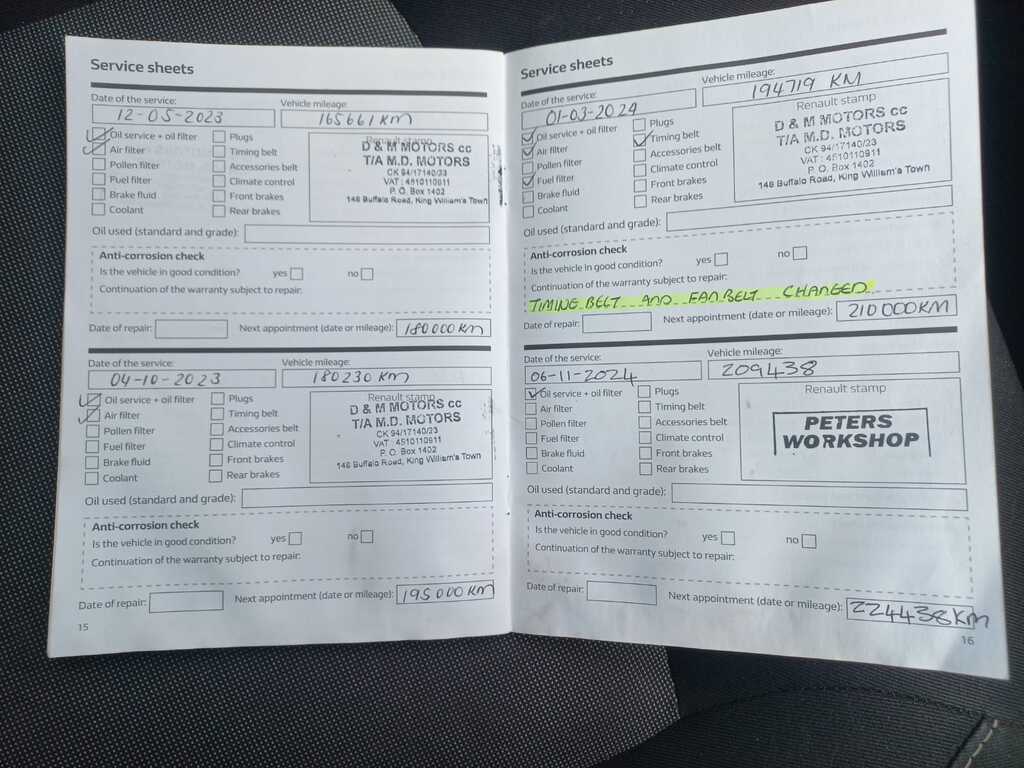 Service sheets
Date of the service:
Vehicle mileage:
12-05-2023
165661 KM
Oil service + oil filter
Plugs
Air filter
Timing belt
Pollen filter
Accessories belt
Fuel filter
Climate control
Brake fluid
Front brakes
Coolant
Rear brakes
Renault stamp
D & M MOTORS cc
T/A M.D. MOTORS
CK 94/17140/23
VAT : 4510110911
P. O. Box 1402
146 Buffalo Road, King William's Town
Oil used (standard and grade):
Anti-corrosion check
Is the vehicle in good condition? yes no
Continuation of the warranty subject to repair:
Date of repair:
Next appointment (date or mileage): 180000KM
Date of the service:
Vehicle mileage:
04-10-2023
180230 KM
Oil service + oil filter
Plugs
Air filter
Timing belt
Pollen filter
Accessories belt
Fuel filter
Climate control
Brake fluid
Front brakes
Coolant
Rear brakes
Renault stamp
D & M MOTORS cc
T/A M.D. MOTORS
CK 94/17140/23
VAT : 4510110911
P. O. Box 1402
146 Buffalo Road, King William's Town
Oil used (standard and grade):
Anti-corrosion check
Is the vehicle in good condition? yes no
Continuation of the warranty subject to repair:
Date of repair:
Next appointment (date or mileage): 195000KM
15
Service sheets
Date of the service:
Vehicle mileage:
01-03-2024
194719 KM
Oil service + oil filter
Plugs
Air filter
Timing belt
Pollen filter
Accessories belt
Fuel filter
Climate control
Brake fluid
Front brakes
Coolant
Rear brakes
Renault stamp
D & M MOTORS cc
T/A M.D. MOTORS
CK 94/17140/23
VAT : 4510110911
P. O. Box 1402
146 Buffalo Road, King William's Town
Oil used (standard and grade):
Anti-corrosion check
Is the vehicle in good condition? yes no
Continuation of the warranty subject to repair:
TIMING BELT AND FAN BELT CHANGED
Date of repair:
Next appointment (date or mileage): 210000KM
Date of the service:
Vehicle mileage:
06-11-2024
209438
Oil service + oil filter
Plugs
Air filter
Timing belt
Pollen filter
Accessories belt
Fuel filter
Climate control
Brake fluid
Front brakes
Coolant
Rear brakes
Renault stamp
PETERS
WORKSHOP
Oil used (standard and grade):
Anti-corrosion check
Is the vehicle in good condition? yes no
Continuation of the warranty subject to repair:
Date of repair:
Next appointment (date or mileage): 224438KM
16